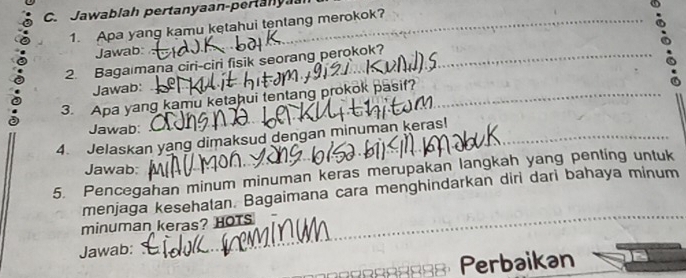 C. Jawablah pertanyaan-pertanyaan
1. Apa yang kamu ketahui tentang merokok?
Jawab: tidak baik
2. Bagaimana ciri-ciri fisik seorang perokok?
Jawab: berkulit hitam, gizi kunins
3. Apa yang kamu ketahui tentang prokok pasif?
Jawab: orangnya berkulit hitam
4. Jelaskan yang dimaksud dengan minuman keras!
Jawab: minumon yang bisa bikin mabuk
5. Pencegahan minum minuman keras merupakan langkah yang penting untuk
menjaga kesehatan. Bagaimana cara menghindarkan diri dari bahaya minum
minuman keras? HOTS
Jawab: tidak meminum
Perbaikan